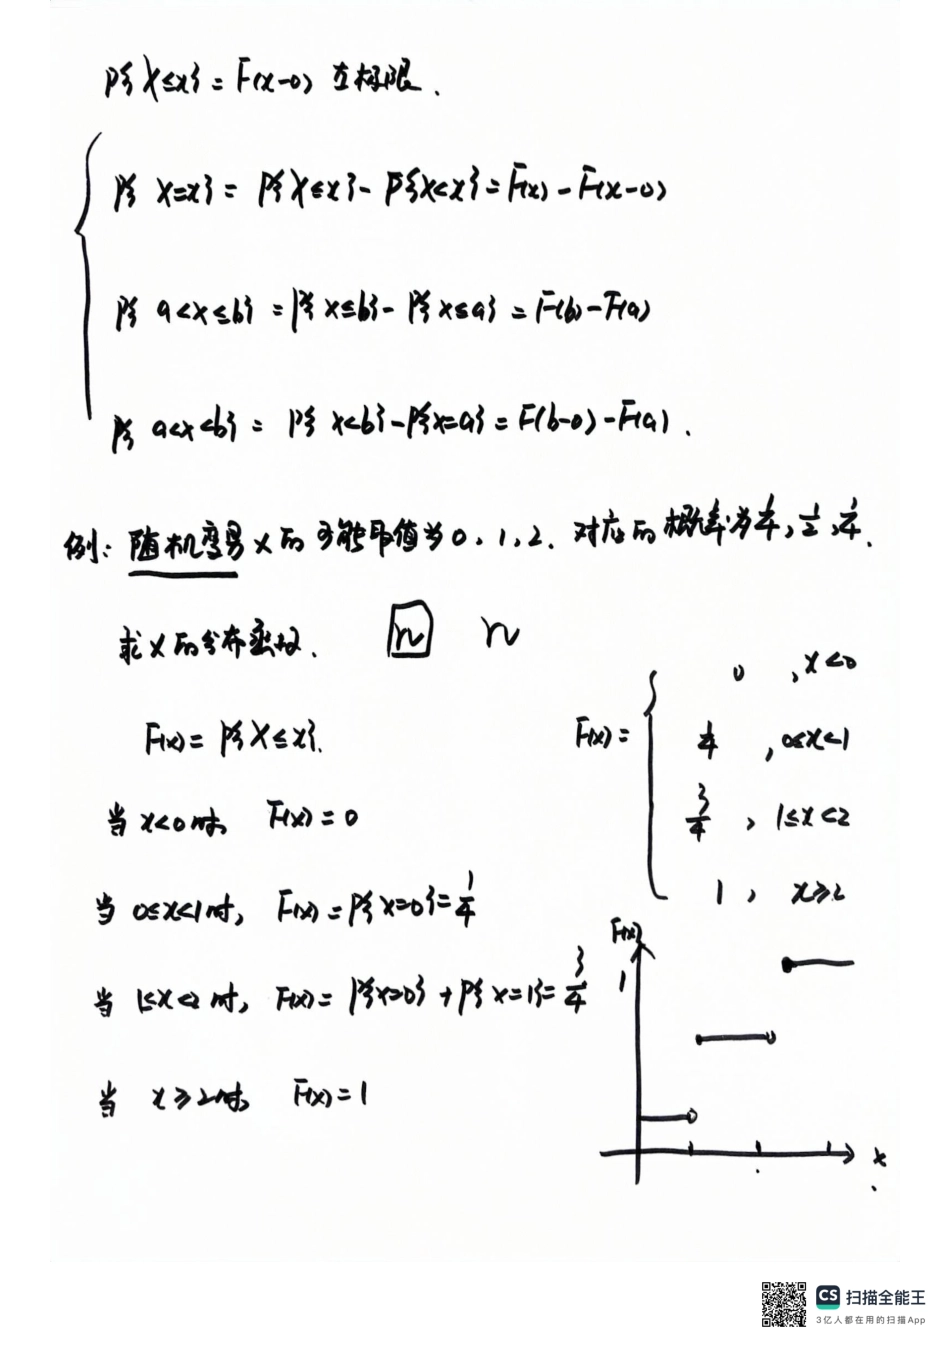 P{X≤x} = F(x-0) 左极限.
P{X=x} = P{X≤x} - P{X<x} = F(x) - F(x-0)
P{a<X≤b} = P{X≤b} - P{X≤a} = F(b) - F(a)
P{a<X<b} = P{X<b} - P{X=a} = F(b-0) - F(a).
例: 随机变量 X 的可能取值为 0, 1, 2. 对应的概率为 1/4, 1/2, 1/4.
求 X 的分布函数. n n
F(x) = P{X≤x}.
当 x<0 时, F(x) = 0
当 0≤x<1 时, F(x) = P{X=0} = 1/4
当 1≤x<2 时, F(x) = P{X=0} + P{X=1} = 3/4
当 x≥2 时, F(x) = 1
F(x) =
0 , x<0
1/4 , 0≤x<1
3/4 , 1≤x<2
1 , x≥2
F(x)
1
x
CS 扫描全能王
3亿人都在用的扫描App